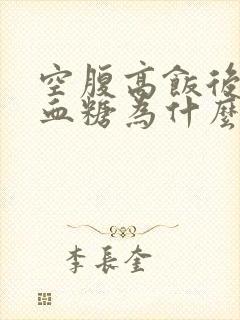 空腹高飯後
血糖為什麼
李長奎